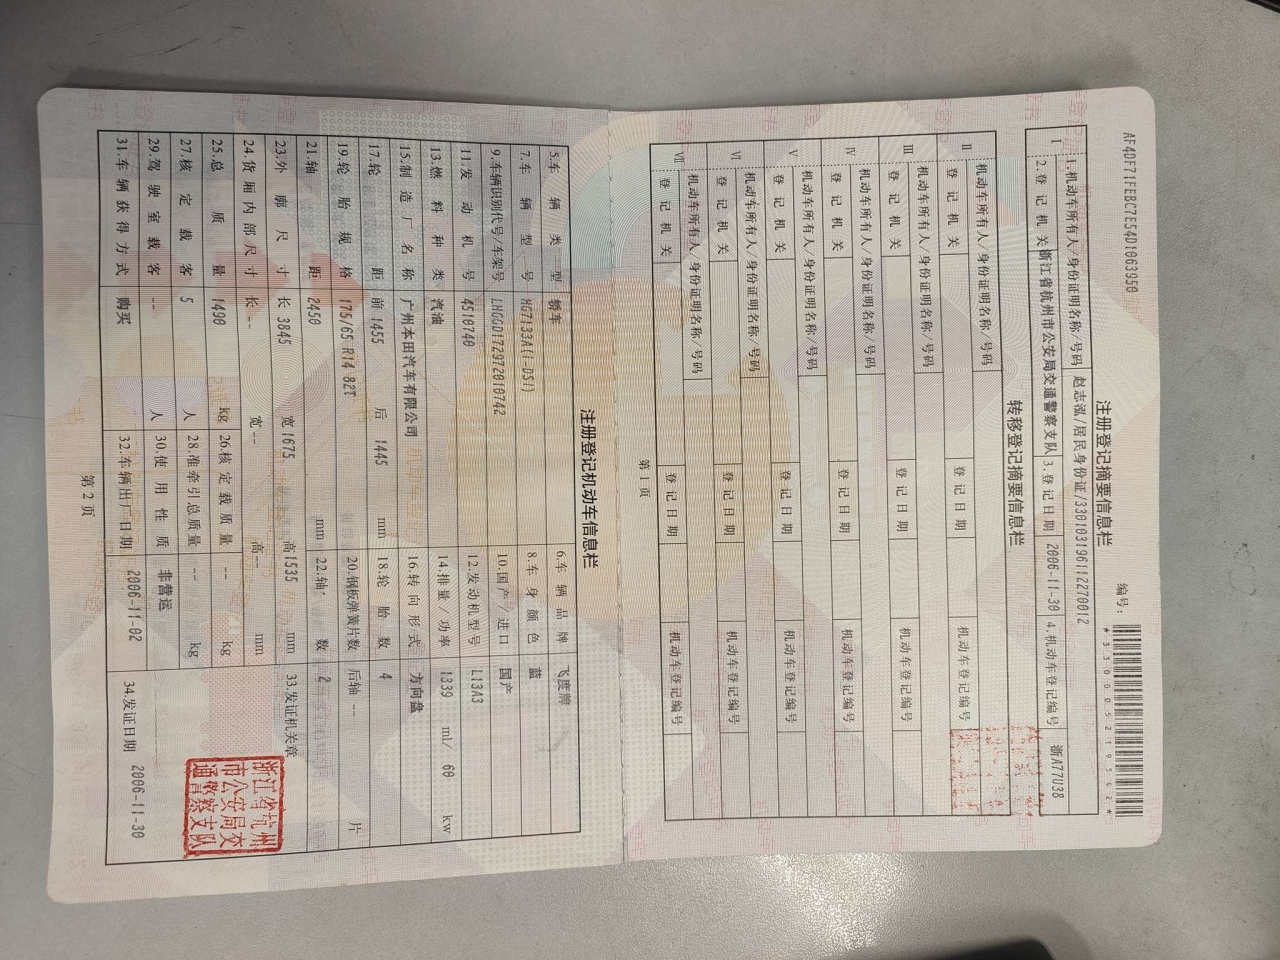 AF4DF71FEBC7E54D1063950
编号：
*330005219542*
注册登记摘要信息栏
Ⅰ 1.机动车所有人/身份证明名称/号码 赵志泓/居民身份证/330103196112270012
2.登记机关 浙江省杭州市公安局交通警察支队 3.登记日期 2006-11-30 4.机动车登记编号 浙A77U38
转移登记摘要信息栏
Ⅱ 机动车所有人/身份证明名称/号码
登记机关 登记日期 机动车登记编号
Ⅲ 机动车所有人/身份证明名称/号码
登记机关 登记日期 机动车登记编号
Ⅳ 机动车所有人/身份证明名称/号码
登记机关 登记日期 机动车登记编号
Ⅴ 机动车所有人/身份证明名称/号码
登记机关 登记日期 机动车登记编号
Ⅵ 机动车所有人/身份证明名称/号码
登记机关 登记日期 机动车登记编号
Ⅶ 机动车所有人/身份证明名称/号码
登记机关 登记日期 机动车登记编号
第 1 页
注册登记机动车信息栏
5.车辆类型 轿车 6.车辆品牌 飞度牌
7.车辆型号 HG7133A(I-DSI) 8.车身颜色 蓝
9.车辆识别代号/车架号 LHGGD172972010742 10.国产/进口 国产
11.发动机号 4510740 12.发动机型号 L13A3
13.燃料种类 汽油 14.排量/功率 1339 ml/ 60 kw
15.制造厂名称 广州本田汽车有限公司 16.转向形式 方向盘
17.轮距 前 1455 后 1445 mm 18.轮胎数 4
19.轮胎规格 175/65 R14 82T 20.钢板弹簧片数 后轴 -- 片
21.轴距 2450 mm 22.轴数 2
23.外廓尺寸 长 3845 宽 1675 高 1535 mm 33.发证机关章
24.货厢内部尺寸 长 -- 宽 -- 高 -- mm
25.总质量 1490 kg 26.核定载质量 -- kg
27.核定载客 5 人 28.准牵引总质量 -- kg
29.驾驶室载客 -- 人 30.使用性质 非营运
31.车辆获得方式 购买 32.车辆出厂日期 2006-11-02 34.发证日期 2006-11-30
浙江省杭州
市公安局交
通警察支队
第 2 页